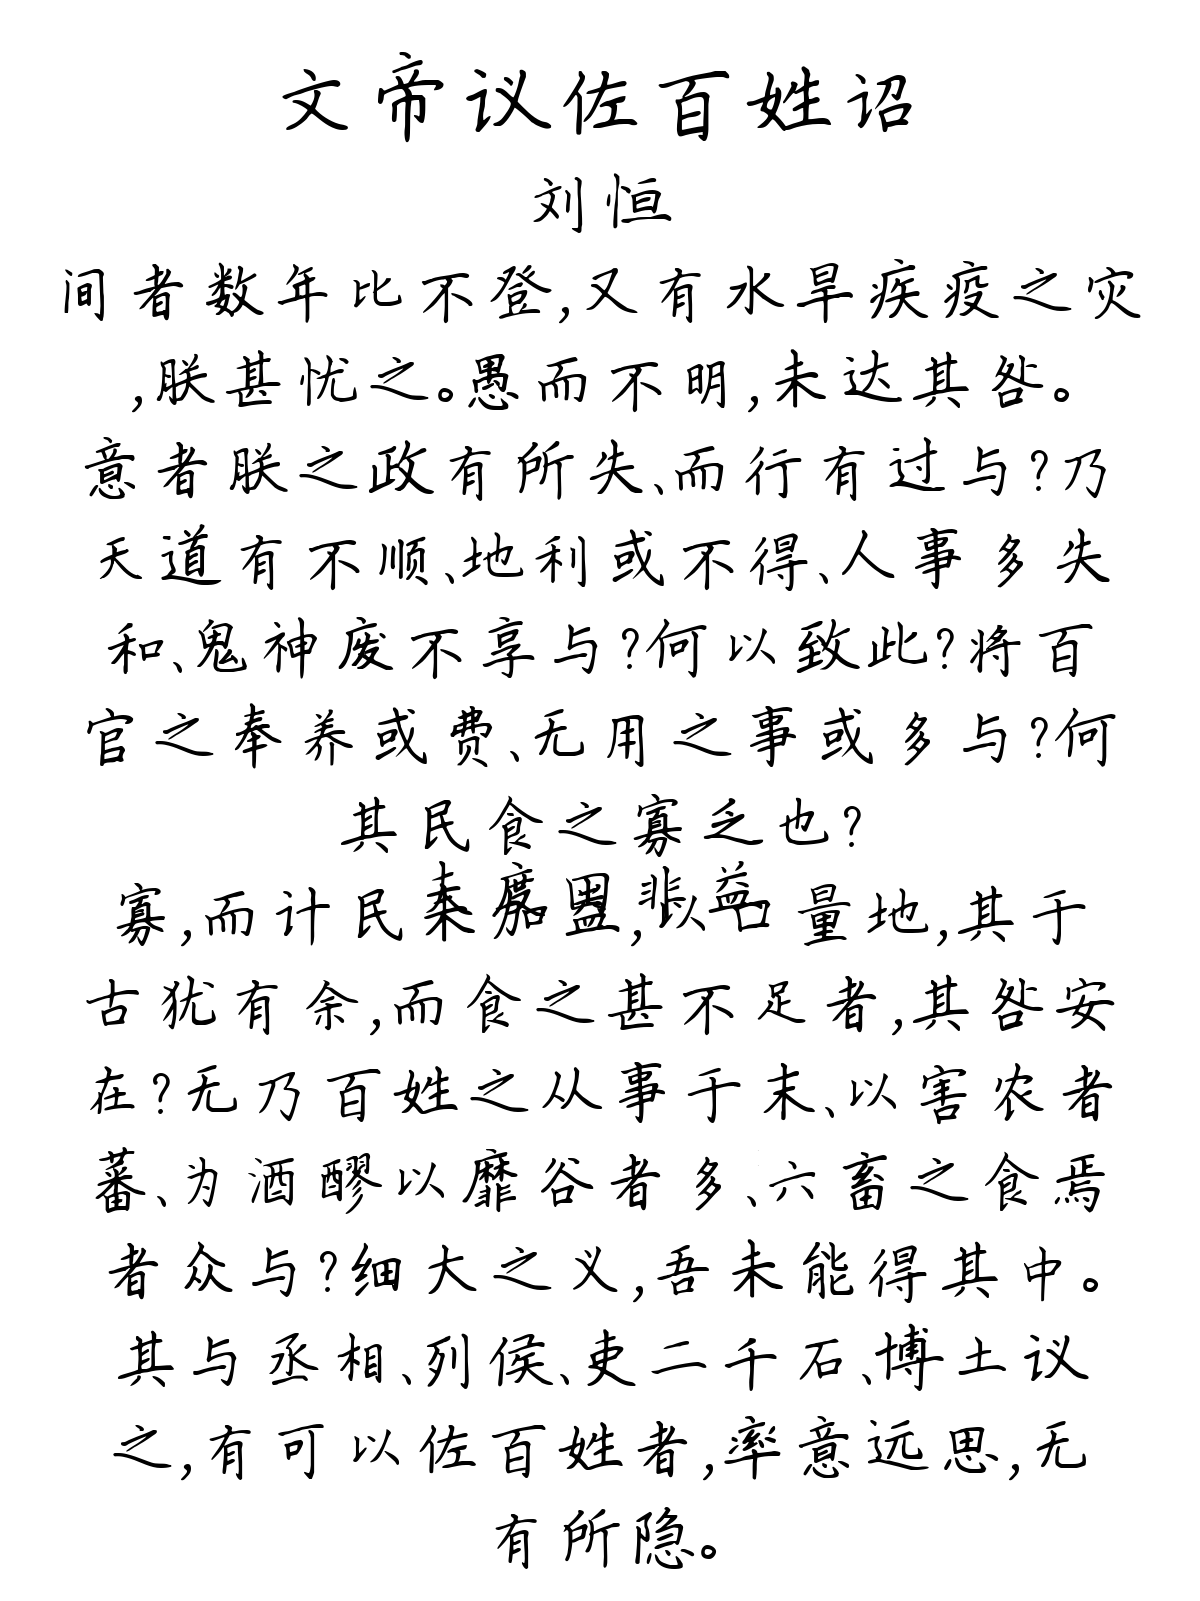 文帝议佐百姓诏
刘恒
间者数年比不登,又有水旱疾疫之灾
,朕甚忧之。愚而不明,未达其咎。
意者朕之政有所失、而行有过与?乃
天道有不顺、地利或不得、人事多失
和、鬼神废不享与?何以致此?将百
官之奉养或费、无用之事或多与?何
其民食之寡乏也?
夫度田非益
寡,而计民未加益,以口量地,其于
古犹有余,而食之甚不足者,其咎安
在?无乃百姓之从事于末、以害农者
蕃、为酒醪以靡谷者多、六畜之食焉
者众与?细大之义,吾未能得其中。
其与丞相、列侯、吏二千石、博士议
之,有可以佐百姓者,率意远思,无
有所隐。